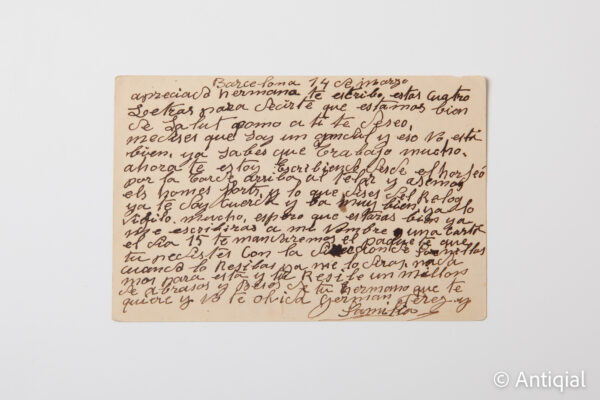 Barcelona 14 de marzo
apreciada hermana te escribo, estas cuatro
Letras para decirte que estamos bien
de Salut como a ti te deseo,
me dises que soy un y eso no está
bien, ya sabes que trabajo mucho.
ahora te estoy escribiendo desde el
por la tarde arriba al telar y asemos
els homes forts, y lo que dises del Relog
ya te doy cuerda y va muy bien, ya lo
vigilo mucho, espero que estaras bien y
me escribiras a me nombre, una carta
el dia 15 te mandaremos el paquete que
tu nesesites con la de
cuando lo Resibas ya me lo diras, nada
mas para esta y tu Resibe un millons
de abrasos y besos de tu hermano que te
quiere y no te olvida German Perez y
familia
© Antiqial